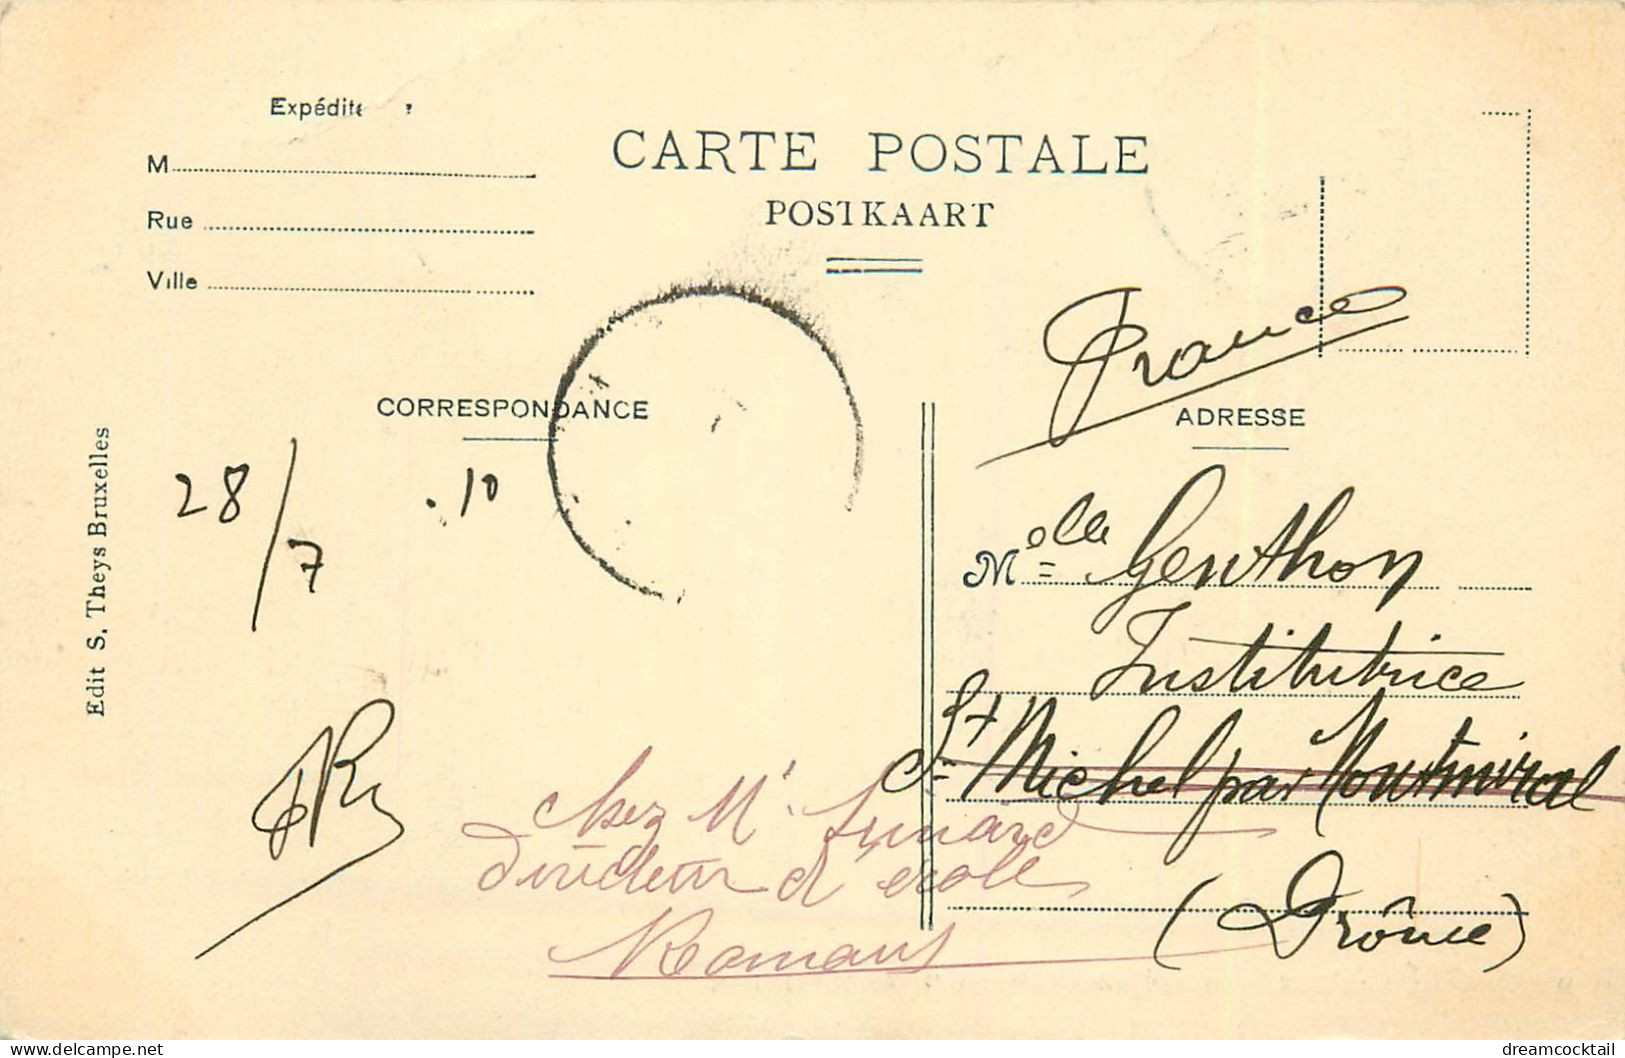 Expédite
M
Rue
Ville
CARTE POSTALE
POSTKAART
CORRESPONDANCE
ADRESSE
Edit S. Theys Bruxelles
France
28/7 .10
Melle Genthon
Institutrice
St Michel par Montmiral
(Drôme)
chez Mr
Directeur d'école
Romans
www.delcampe.net
dreamcocktail